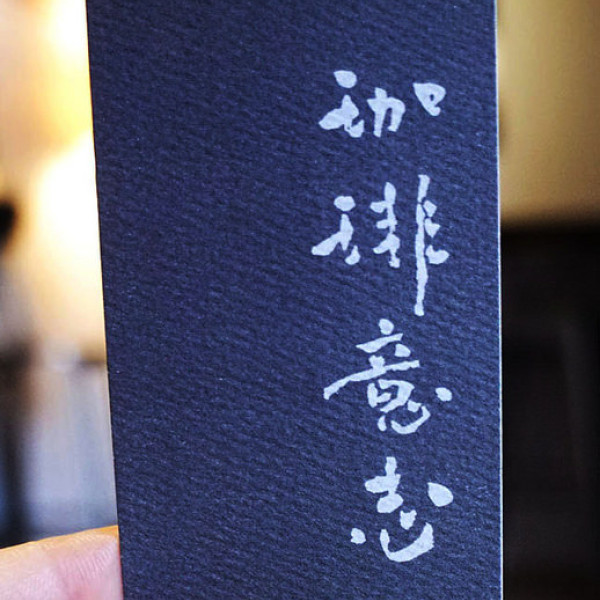 珈琲意志